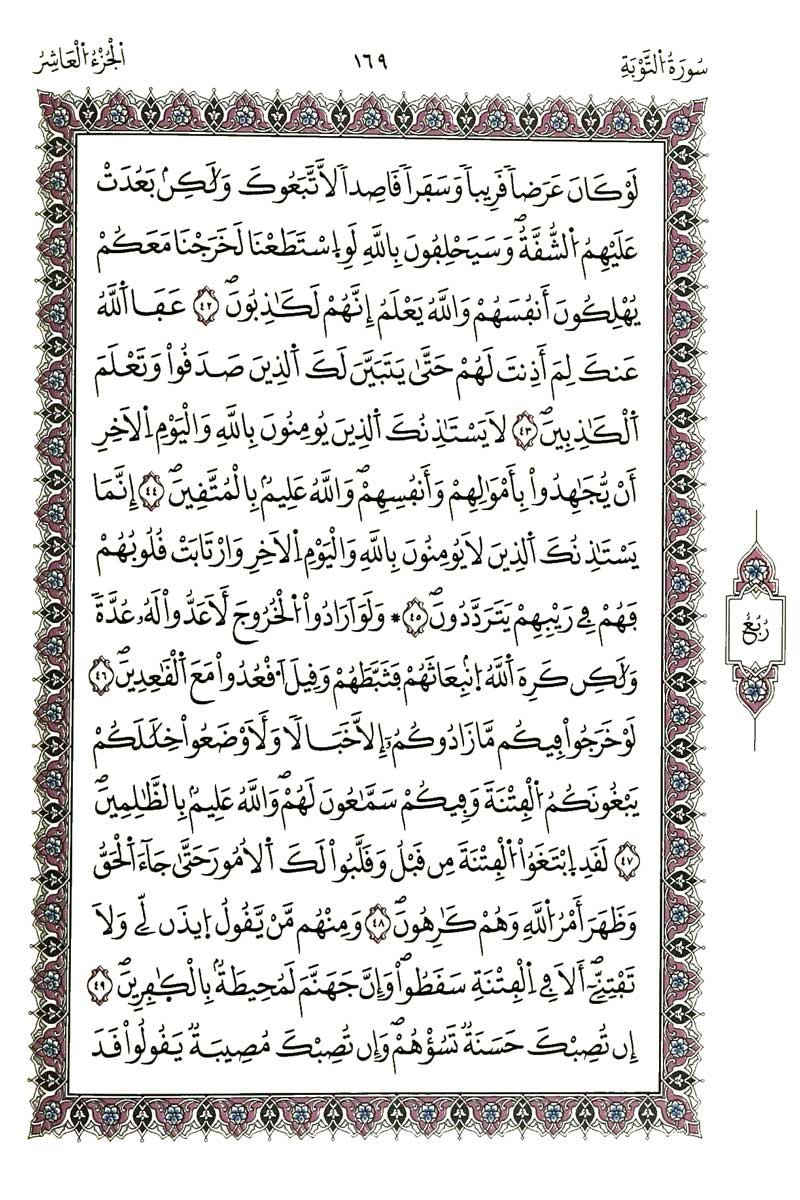 سُورَةُ التَّوْبَةِ
١٦٩
الْجُزْءُ الْعَاشِرُ
لَوْ كَانَ عَرَضاٗ قَرِيباٗ وَسَفَراٗ قَاصِداٗ لَّاتَّبَعُوكَ وَلَٰكِنۢ بَعُدَتْ
عَلَيْهِمُ اُ۬لشُّقَّةُۖ وَسَيَحْلِفُونَ بِاللَّهِ لَوِ اِ۪سْتَطَعْنَا لَخَرَجْنَا مَعَكُمْ
يُهْلِكُونَ أَنفُسَهُمْ وَاللَّهُ يَعْلَمُ إِنَّهُمْ لَكَٰذِبُونَۖ ٤٢ عَفَا اَ۬للَّهُ
عَنكَ لِمَ أَذِنتَ لَهُمْ حَتَّىٰ يَتَبَيَّنَ لَكَ اَ۬لذِينَ صَدَقُواْ وَتَعْلَمَ
اَ۬لْكَٰذِبِينَۖ ٤٣ لَا يَسْتَٰذِنُكَ اَ۬لذِينَ يُومِنُونَ بِاللَّهِ وَالْيَوْمِ اِ۬لَاخِرِ
أَنْ يُّجَٰهِدُواْ بِأَمْوَٰلِهِمْ وَأَنفُسِهِمْۖ وَاللَّهُ عَلِيمُۢ بِالْمُتَّقِينَۖ ٤٤ إِنَّمَا
يَسْتَٰذِنُكَ اَ۬لذِينَ لَا يُومِنُونَ بِاللَّهِ وَالْيَوْمِ اِ۬لَاخِرِ وَارْتَابَتْ قُلُوبُهُمْ
فَهُمْ فِے رَيْبِهِمْ يَتَرَدَّدُونَۖ ٤٥ ۞ وَلَوَ اَرَادُواْ اُ۬لْخُرُوجَ لَأَعَدُّواْ لَهُۥ عُدَّةٗ
وَلَٰكِن كَرِهَ اَ۬للَّهُ اُ۪نۢبِعَاثَهُمْ فَثَبَّطَهُمْ وَقِيلَ اَ۟قْعُدُواْ مَعَ اَ۬لْقَٰعِدِينَۖ ٤٦
لَوْ خَرَجُواْ فِيكُم مَّا زَادُوكُمُۥٓ إِلَّا خَبَالاٗ وَلَأَوْضَعُواْ خِلَٰلَكُمْ
يَبْغُونَكُمُ اُ۬لْفِتْنَةَ وَفِيكُمْ سَمَّٰعُونَ لَهُمْۖ وَاللَّهُ عَلِيمُۢ بِالظَّٰلِمِينَۖ
٤٧ لَقَدِ اِ۪بْتَغَوُاْ اُ۬لْفِتْنَةَ مِن قَبْلُ وَقَلَّبُواْ لَكَ اَ۬لُامُورَ حَتَّىٰ جَآءَ اَ۬لْحَقُّ
وَظَهَرَ أَمْرُ اُ۬للَّهِ وَهُمْ كَٰرِهُونَۖ ٤٨ وَمِنْهُم مَّنْ يَّقُولُ اُ۪يذَن لِّے وَلَا
تَفْتِنِّےۖ أَلَا فِے اِ۬لْفِتْنَةِ سَقَطُواْۖ وَإِنَّ جَهَنَّمَ لَمُحِيطَةُۢ بِالْكٰ۪فِرِينَۖ ٤٩
إِن تُصِبْكَ حَسَنَةٞ تَسُؤْهُمْۖ وَإِن تُصِبْكَ مُصِيبَةٞ يَقُولُواْ قَدَ
رُبُعُ